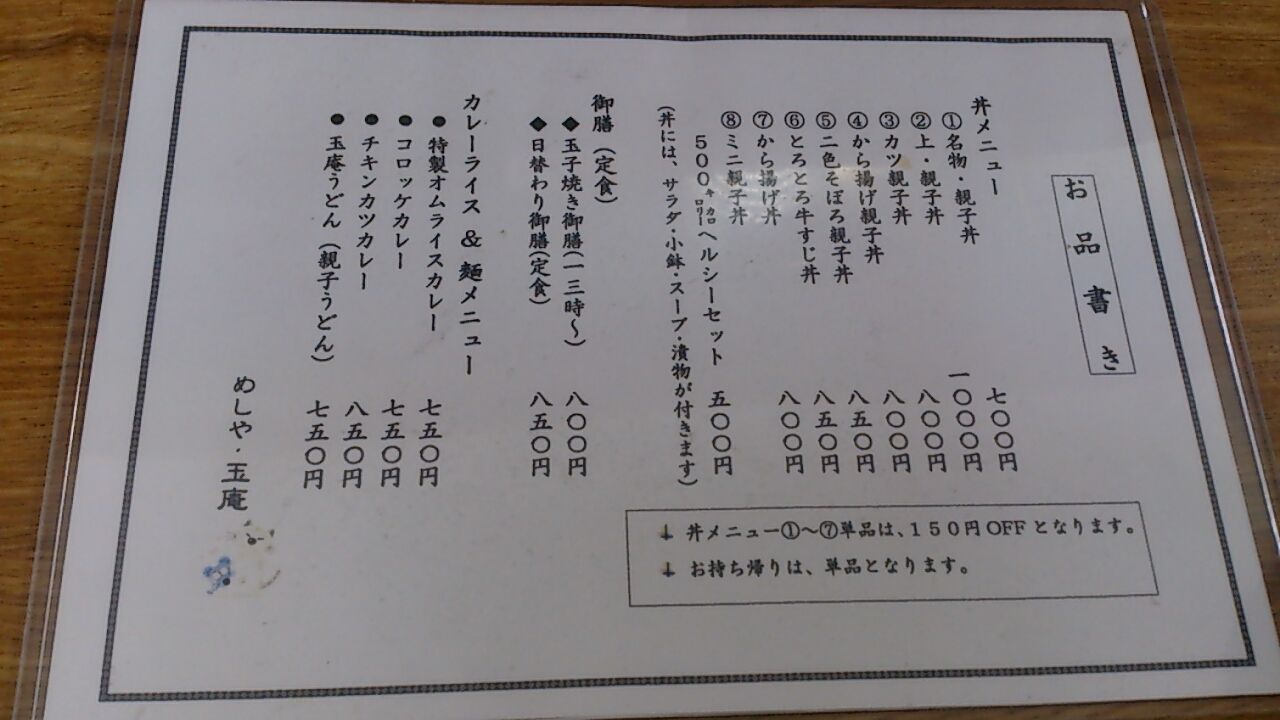 お品書き
丼メニュー
①名物・親子丼 七〇〇円
②上・親子丼 一〇〇〇円
③カツ親子丼 八〇〇円
④から揚げ親子丼 八〇〇円
⑤二色そぼろ親子丼 八五〇円
⑥とろとろ牛すじ丼 八五〇円
⑦から揚げ丼 八〇〇円
⑧ミニ親子丼
５００㌔㌍㍗ヘルシーセット 五〇〇円
（丼には、サラダ・小鉢・スープ・漬物が付きます）
御膳（定食）
◆玉子焼き御膳（一三時～） 八〇〇円
◆日替わり御膳（定食） 八五〇円
カレーライス ＆ 麺メニュー
●特製オムライスカレー 七五〇円
●コロッケカレー 七五〇円
●チキンカツカレー 八五〇円
●玉庵うどん（親子うどん） 七五〇円
めしや・玉庵
丼メニュー①～⑦単品は、１５０円OFFとなります。
お持ち帰りは、単品となります。